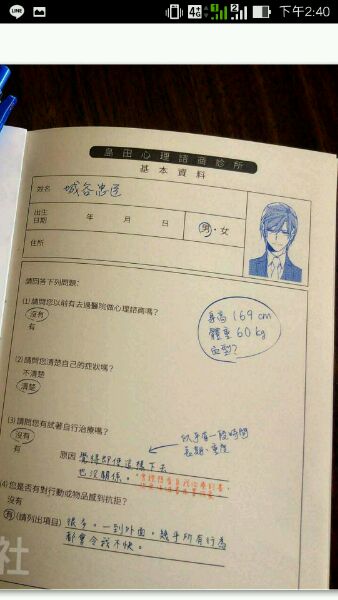 下午2:40
島田心理諮商診所
基本資料
姓名 城谷忠臣
出生日期 年 月 日 男・女
住所
請回答下列問題:
(1)請問您以前有去過醫院做心理諮商嗎?
沒有
有
身高 169 cm
體重 60 kg
血型?
(2)請問您清楚自己的症狀嗎?
不清楚
清楚
(3)請問您有試著自行治療嗎?
沒有
有
似乎有一段時間
長期、重度
原因 覺得即使這樣下去
也沒關係。
(4)您是否有對行動或物品感到抗拒?
沒有
有(請列出項目) 很多。一到外面,幾乎所有行為
都會令我不快。
社